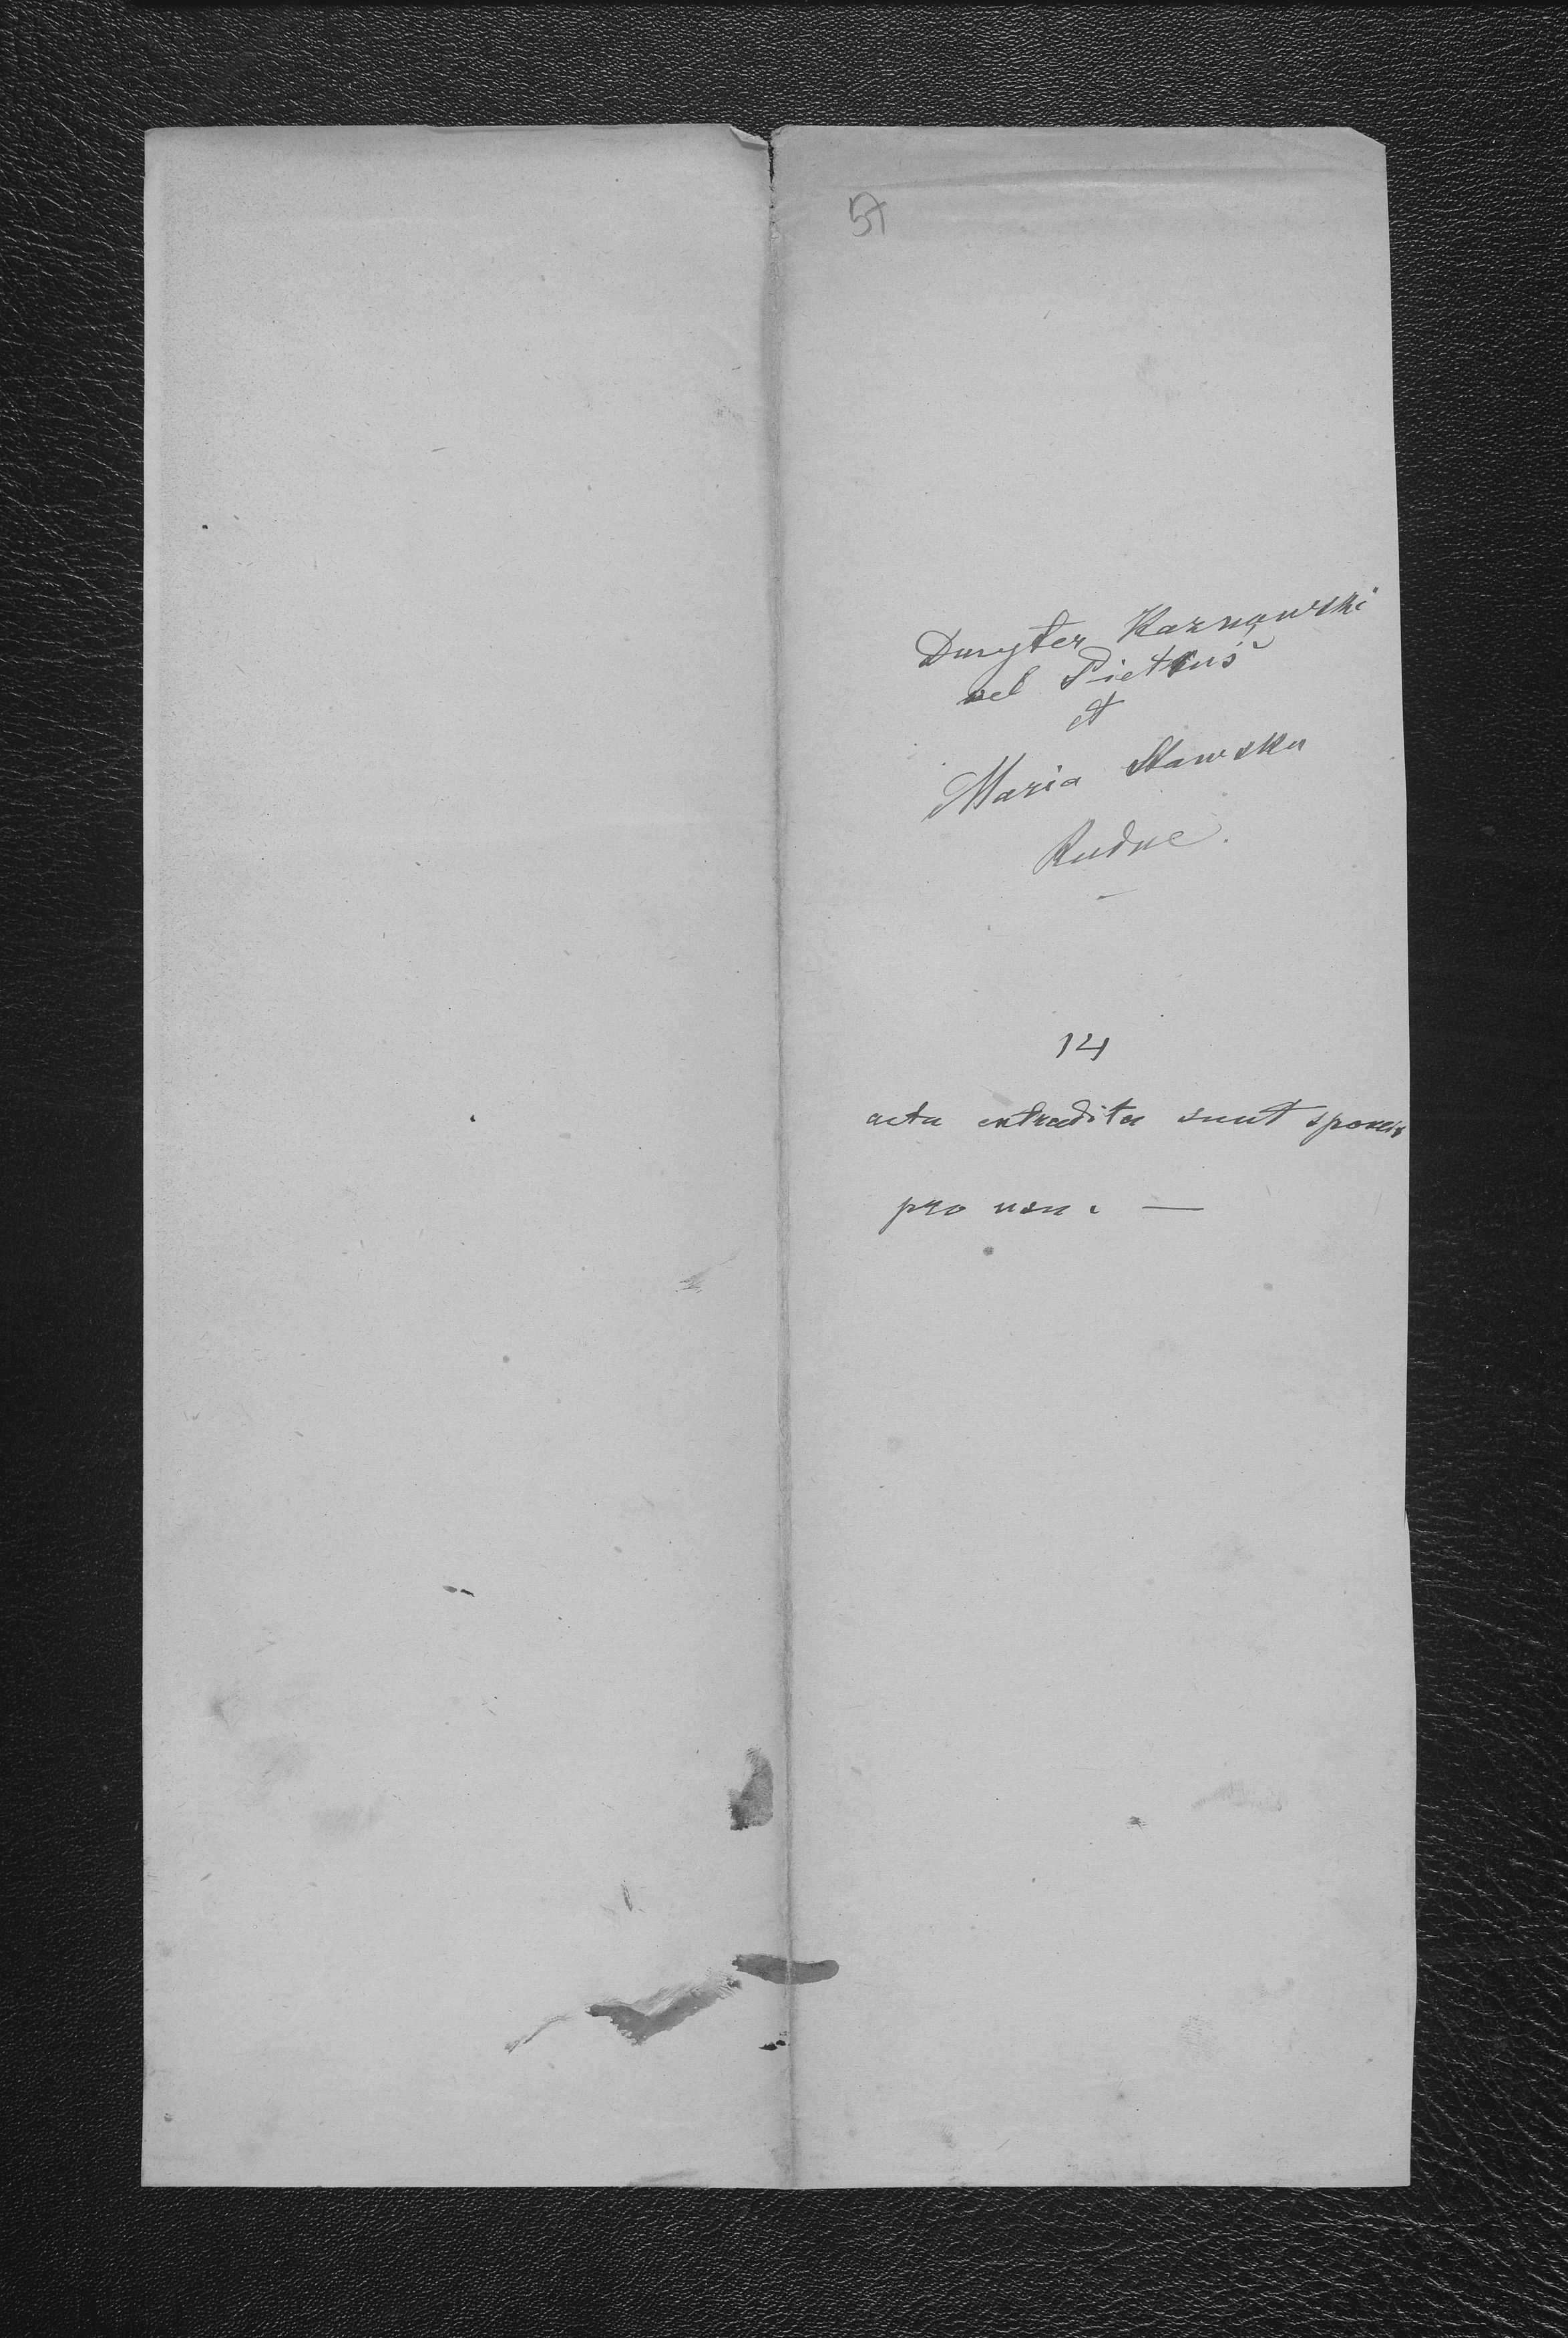 57
Dmyter Karnowski
vel Pietruś
et
Maria Stawska
Rudne.
14
acta extradita sunt sponsis
pro usu. —